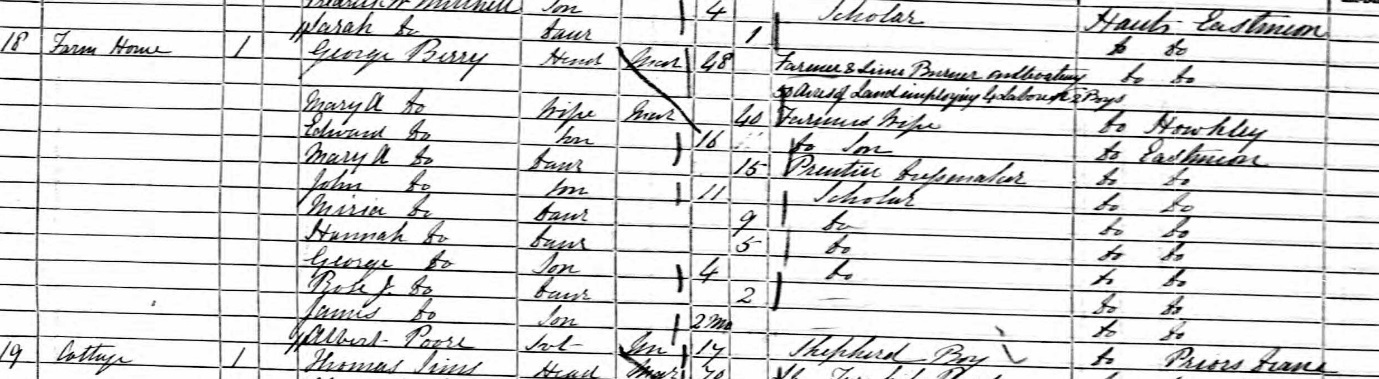 Frederick W Mitchell Son 4 Scholar Hants Eastmeon
Sarah Do Daur 1 Do Do
18 Farm House 1 George Berry Head Mar 48 Farmer & Lime Burner cultivating Do Do
50 Acres of Land imploying 4 Labourers 2 Boys
Mary A Do Wife Mar 40 Farmers Wife Do Hawkley
Edward Do Son 16 Do Son Do Eastmeon
Mary A Do Daur 15 Prentice Dressmaker Do Do
John Do Son 11 Scholar Do Do
Do Daur 9 Do Do Do
Hannah Do Daur 5 Do Do Do
George Do Son 4 Do Do Do
Rose J Do Daur 2 Do Do
James Do Son 2 Mo Do Do
Albert Poore Svt Un 17 Shepherd Boy Do Priors Deane
19 Cottage 1 Thomas Head Mar 70